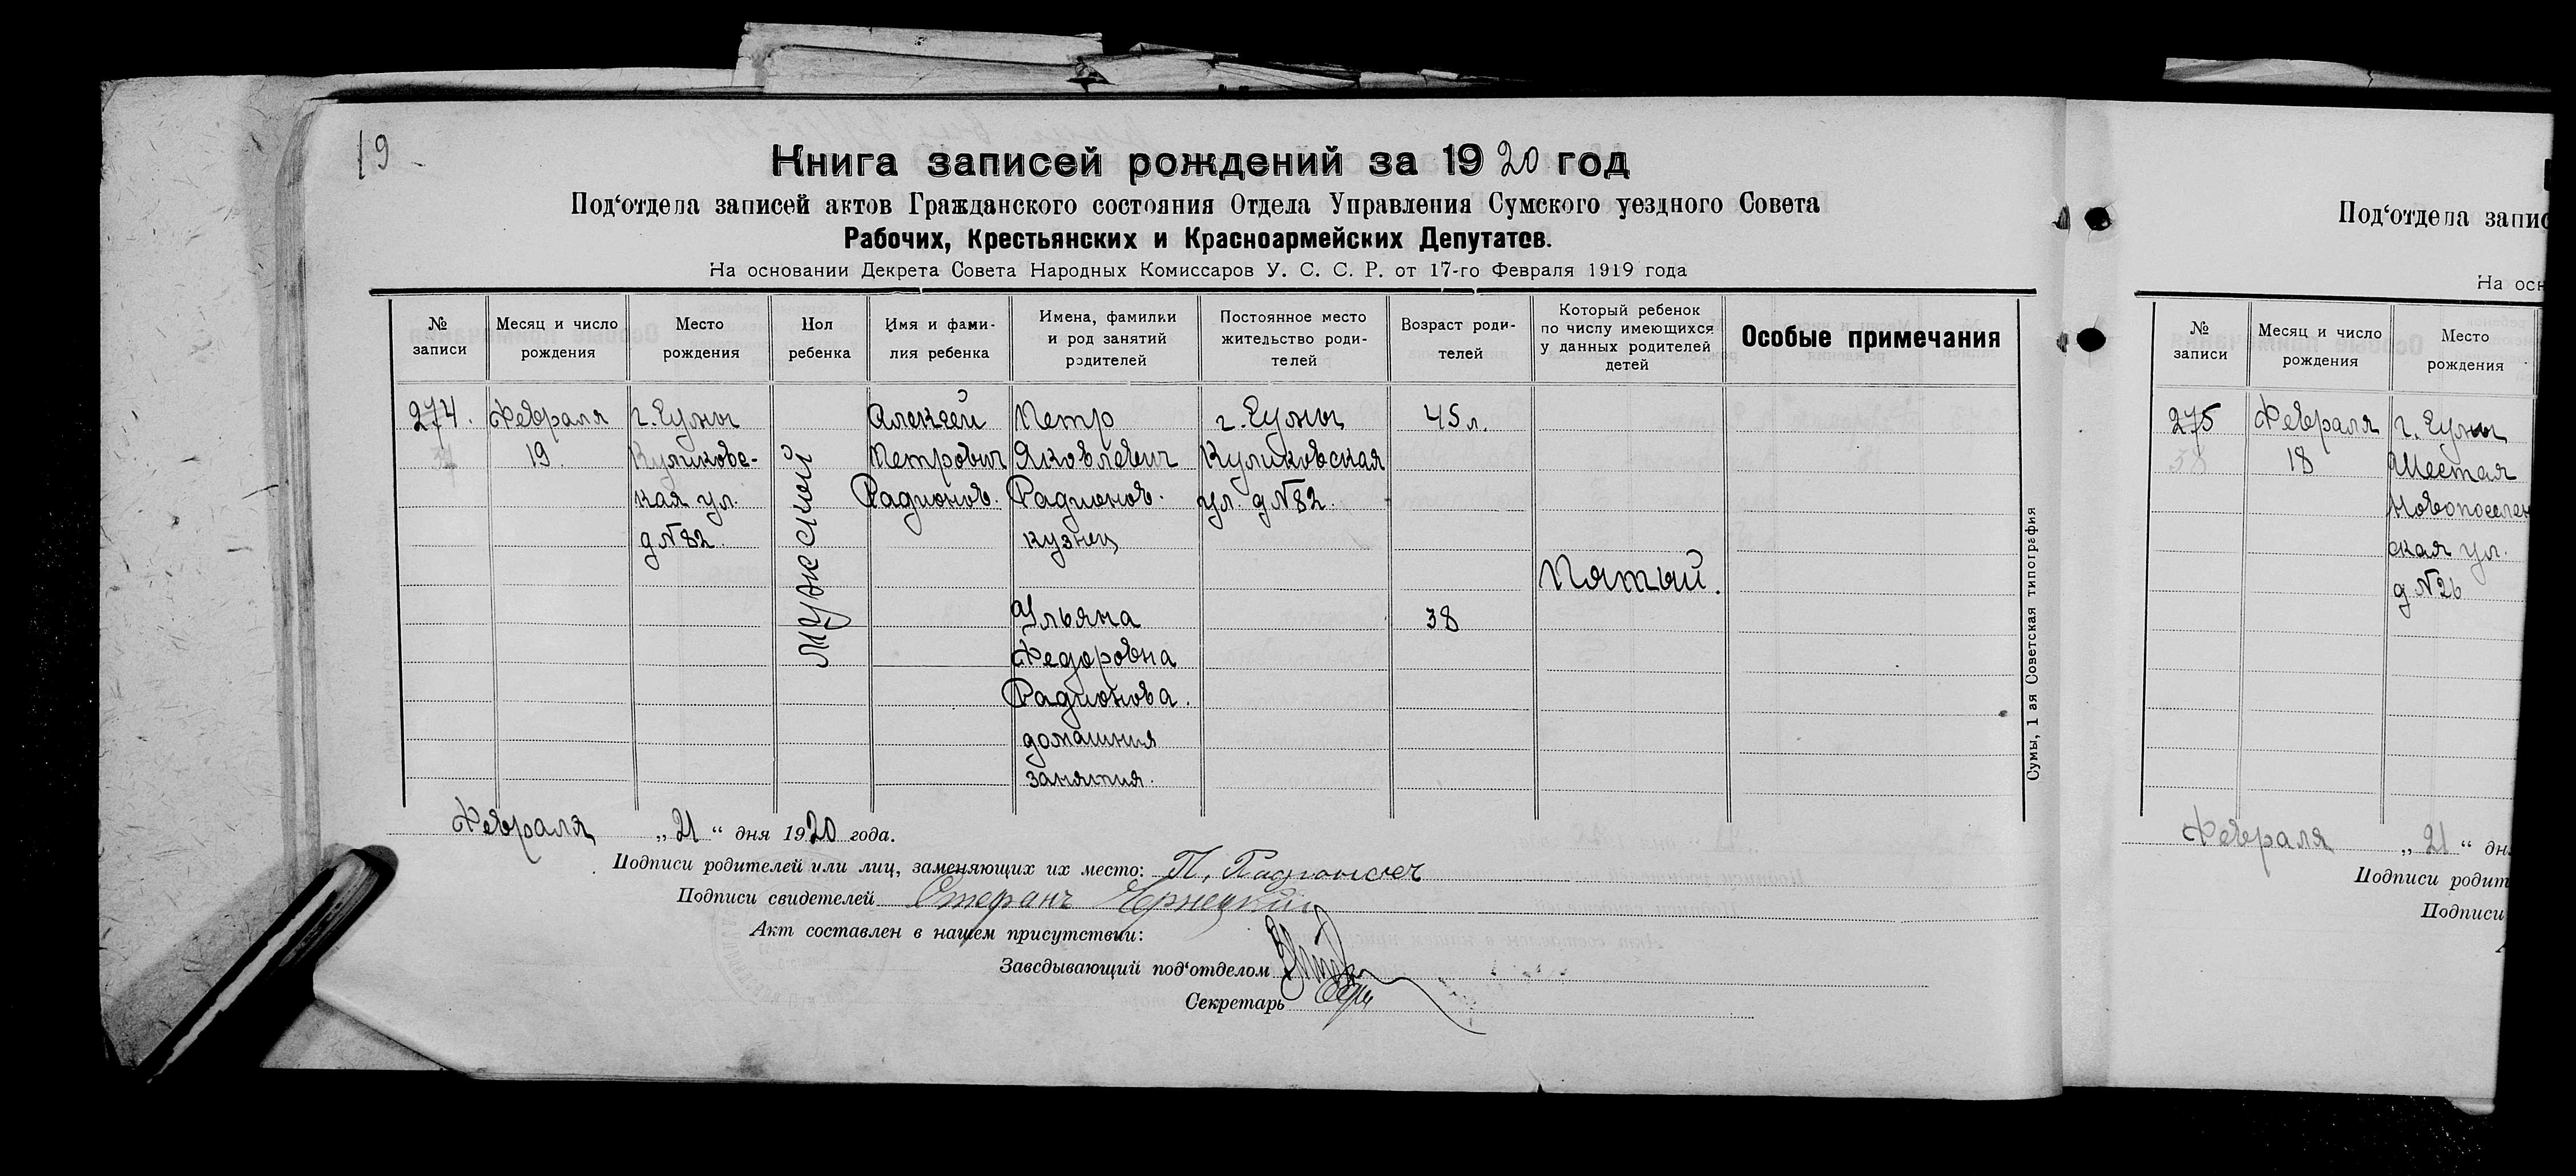 19
Книга записей рождений за 1920 год
Под‘отдела записей актов Гражданского состояния Отдела Управления Сумского уездного Совета
Рабочих, Крестьянских и Красноармейских Депутатов.
На основании Декрета Совета Народных Комиссаров У. С. С. Р. от 17-го Февраля 1919 года
№ записи
Месяц и число рождения
Место рождения
Пол ребенка
Имя и фами-
лия ребенка
Имена, фамилии
и род занятий
родителей
Постоянное место
жительство роди-
телей
Возраст роди-
телей
Который ребенок
по числу имеющихся
у данных родителей
детей
Особые примечания
274.
Февраля
19.
г. Сумы
Куликовс-
кая ул.
д №82.
мужской
Алексей
Петрович
Радионов.
Петр
Яковлевич
Радионов.
кузнец
Ульяна
Федоровна
Радионова.
домашния
занятия.
г. Сумы
Куликовская
ул. д №82.
45 л.
38
Пятый.
Февраля „21“ дня 1920 года.
Подписи родителей или лиц, заменяющих их место: П.
Подписи свидетелей Стефанъ
Акт составлен в нашем присутствии:
Заведывающий под‘отделом
Секретарь
Сумы, 1 ая Советская типография
Под‘отдела запис
На осн
№ записи
Месяц и число рождения
Место рождения
275
38
Февраля
18
г. Сумы
Шестая
Новопоселен
ская ул.
д №26
Февраля „21“ дн
Подписи родит
Подписи